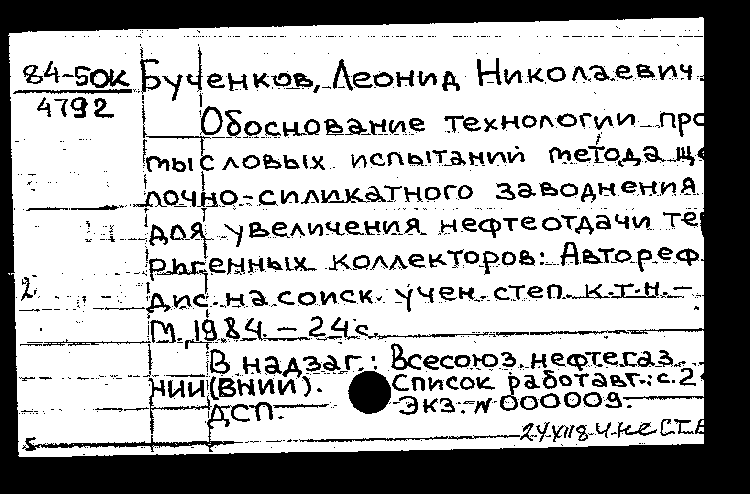 84-5ОК Бученков, Леонид Николаевич.
4792
Обоснование технологии про
мысловых испытаний метода ще
лочно-силикатного заводнения
для увеличения нефтеотдачи тер
ригенных коллекторов: Автореф.
2 дис. на соиск. учен. степ. к.т.н. –
М., 1984. – 24 с.
В надзаг.: Всесоюз. нефтегаз.
НИИ (ВНИИ). Список работ авт.: с. 2
ДСП. Экз. № 000009.
5